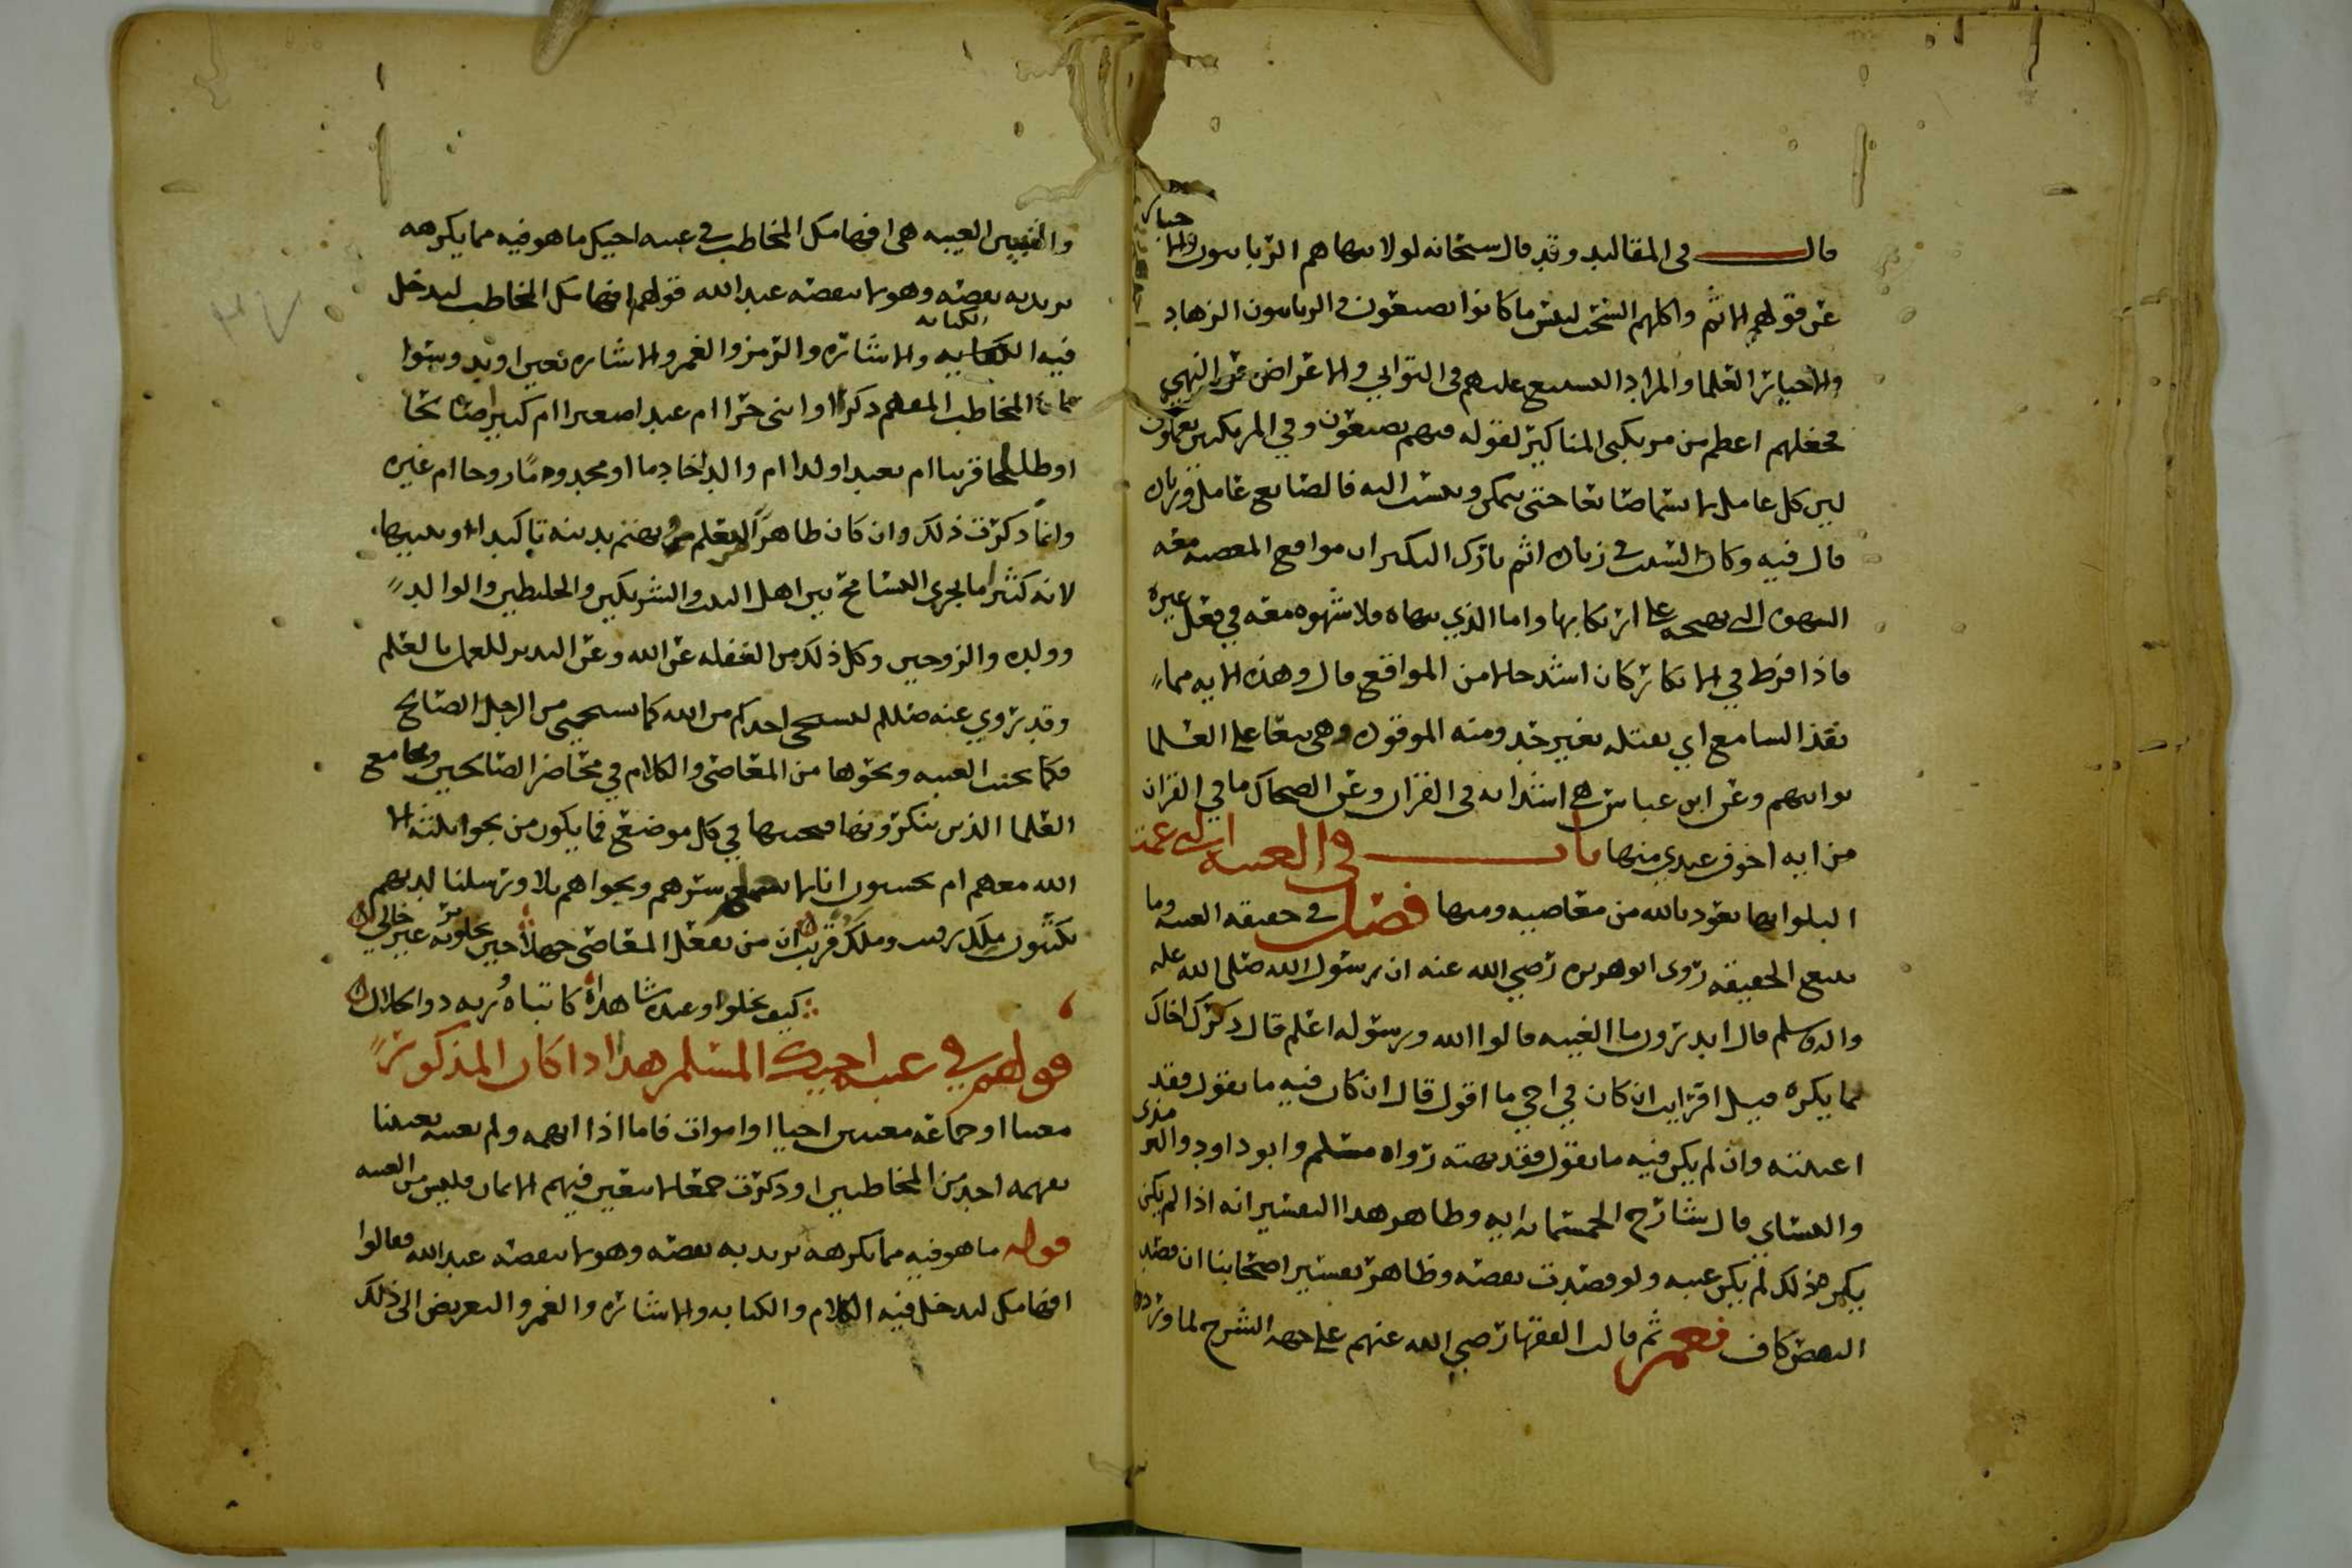 قال في المقاليد وقد قال سبحانه لولا ينهاهم الربانيون والاحبار
عن قولهم الاثم واكلهم السحت لبئس ما كانوا يصنعون والربانيون الزهاد
والاحبار العلما والمراد التشنيع عليهم في التواني والاعراض عن النهي
فجعلهم اعظم من مرتكبي المناكير لقوله فيهم يصنعون وفي المرتكبين يعملون
ليس كل عامل يسما صانعا حتى يتمكن وينسب اليه فالصانع عامل وزيادة
قال فيه وكان السبب في زيادة اثم تارك النكير ان مواقع المعصية معه
الشهوة التي تحمله على ارتكابها واما الذي ينهاه فلا شهوه معه في فعل غيره
فاذا فرط في الانكار كان اشد حالا من المواقع قال وهذه الايه مما
يقذ السامع اي يقتله بغير حد ومنه الموقوذه وهي تنعا على العلما
توانيهم وعن ابن عباس هي اشد ايه في القران وعن الضحاك ما في القران
من ايه اخوف عندي منها باب في الغيبه التي عمت
البلوا بها نعوذ بالله من معاصيه ومنها فصل في حقيقه الغيبه وما
يتبع الحقيقه روى ابو هريره رضي الله عنه ان رسول الله صلى الله عليه
واله وسلم قال اتدرون ما الغيبه قالوا الله ورسوله اعلم قال ذكرك اخاك
بما يكره قيل افرايت ان كان في اخي ما اقول قال ان كان فيه ما تقول فقد
اغتبته وان لم يكن فيه ما تقول فقد بهته رواه مسلم وابو داود والترمذي
والنسائي قال شارح الخمسمائه ايه وظاهر هذا التفسير انه اذا لم يكن
يكره ذلك لم يكن غيبه ولو قصدت نقصه وظاهر تفسير اصحابنا ان قصد
النقص كاف نعم ثم قالت الفقها رضي الله عنهم على جهه الشرح لما ورد
والتبيين الغيبه هي افهامك المخاطب في غيبه اخيك ما هو فيه مما يكرهه
تريد به نقصه وهو لا ينقصه عند الله قولهم افهامك المخاطب ليدخل
فيه الكنايه والاشاره والرمز والغمز والاشاره بعين او يد وسوا
كان المخاطب المفهم ذكرا او انثى حرا ام عبدا صغيرا ام كبيرا صالحا
او طالحا قريبا ام بعيدا ولدا ام والدا خادما او مخدوما زوجا ام غيره
وانما ذكرت ذلك وان كان ظاهرا ليعلم من يهتم بدينه تاكيدا وتنبيها
لانه كثيرا ما يجري التسامح بين اهل البيت والشريكين والخليطين والوالد
وولده والزوجين وكل ذلك من الغفله عن الله وعن التدبر للعمل بالعلم
وقد روي عنه صللم ليستحي احدكم من الله كما يستحيي من الرجل الصالح
فكما يجتنب الغيبه ونحوها من المعاصي والكلام في محاضر الصالحين ومجامع
العلما الذين ينكرونها فيجتنبها في كل موضع فما يكون من نجوا ثلثه الا
الله معهم ام يحسبون انا لا نسمع سرهم ونجواهم بلا ورسلنا لديهم
يكتبون ملك رقيب وملك قريب ان من يفعل المعاصي جهلا حين يخلو به غير خالي
كيف يخلوا وعنده شاهداه كاتباه وربه ذوا الجلال
قولهم في غيبه اخيك المسلم هذا اذا كان المذكور
معينا او جماعه معينين احيا او اموات فاما اذا ابهمه ولم يعينه تعيينا
يفهمه احد من المخاطبين او ذكرت جمعا لا يتعين فيهم الايمان فليس من الغيبه
قوله ما هو فيه مما يكرهه تريد به نقصه وهو لا ينقصه عند الله فقالوا
افهامك ليدخل فيه الكلام والكنايه والاشاره والغمز والتعريض الى ذلك